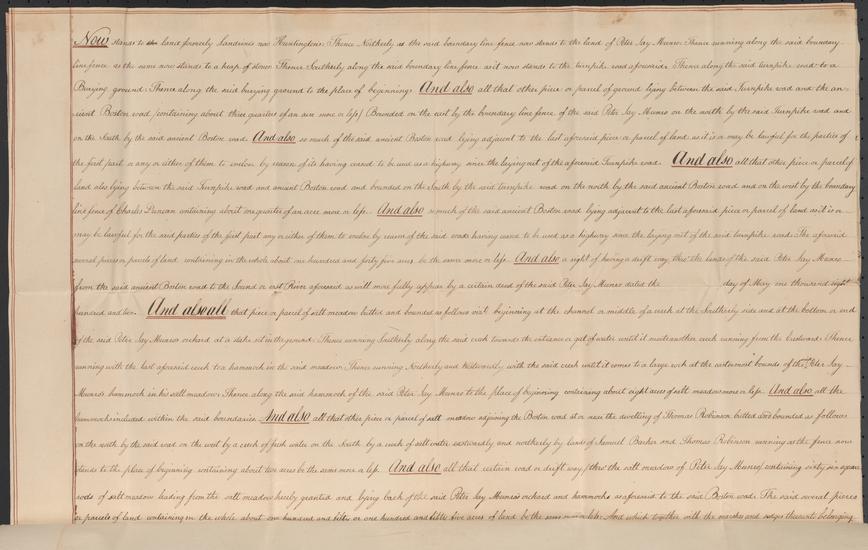 Now stands to the land formerly Landrines now Huntingtons: Thence Northerly as the said boundary line fence now stands to the land of Peter Jay Munro: Thence running along the said boundary
line fence as the same now stands to a heap of stones: Thence Southerly along the said boundary line fence as it now stands to the turnpike road aforesaid: Thence along the said turnpike road to a
Burying ground: Thence along the said burying ground to the place of beginning. And also all that other piece or parcel of ground lying between the said Turnpike road and the an-
cient Boston road (containing about three quarters of an acre more or less) Bounded on the west by the boundary line fence of the said Peter Jay Munro on the north by the said Turnpike road and
on the South by the said ancient Boston road. And also so much of the said ancient Boston road lying adjacent to the last aforesaid piece or parcel of land as it is or may be lawful for the parties of
the first part or any or either of them to enclose by reason of its having ceased to be used as a highway since the laying out of the aforesaid Turnpike road. And also all that other piece or parcel of
land also lying between the said Turnpike road and ancient Boston road and bounded on the South by the said turnpike road on the north by the said ancient Boston road and on the west by the boundary
line fence of Charles Duncan containing about one quarter of an acre more or less. And also so much of the said ancient Boston road lying adjacent to the last aforesaid piece or parcel of land as it is or
may be lawful for the said parties of the first part any or either of them to enclose by reason of the said road having ceased to be used as a highway since the laying out of the said turnpike road: The aforesaid
several pieces or parcels of land containing in the whole about one hundred and forty five acres be the same more or less. And also a right of having a drift way thro' the lands of the said Peter Jay Munro
from the said ancient Boston road to the Sound or east River aforesaid as will more fully appear by a certain deed of the said Peter Jay Munro dated the day of May one thousand eight
hundred and two. And also all that piece or parcel of salt meadow butted and bounded as follows viz: beginning at the channel or middle of a creek at the Southerly side and at the bottom or end
of the said Peter Jay Munros orchard at a stake set in the ground: Thence running Southerly along the said creek towards the entrance or gut of water until it meets another creek running from the Eastward: Thence
running with the last aforesaid creek to a hammock in the said meadow: Thence running Southerly and westwardly with the said creek until it comes to a large rock at the westermost bounds of the Peter Jay
Munros hammock in his salt meadow: Thence along the said hammock of the said Peter Jay Munro to the place of beginning containing about eight acres of salt meadow more or less. And also all the
hammocks included within the said boundaries. And also all that other piece or parcel of salt meadow adjoining the Boston road at or near the dwelling of Thomas Robinson butted and bounded as follows
on the north by the said road on the west by a creek of fresh water on the South by a creek of salt water eastwardly and northerly by lands of Samuel Barker and Thomas Robinson running as the fence now
stands to the place of beginning containing about two acres be the same more or less. And also all that certain road or drift way (thro' the salt meadow of Peter Jay Munro) containing sixty six square
rods of salt meadow leading from the salt meadow hereby granted and lying back of the said Peter Jay Munros orchard and hammocks as aforesaid to the said Boston road: The said several pieces
or parcels of land containing in the whole about one hundred and fifty or one hundred and fifty five acres of land be the same more or less: And which together with the marshes and sedges thereunto belonging